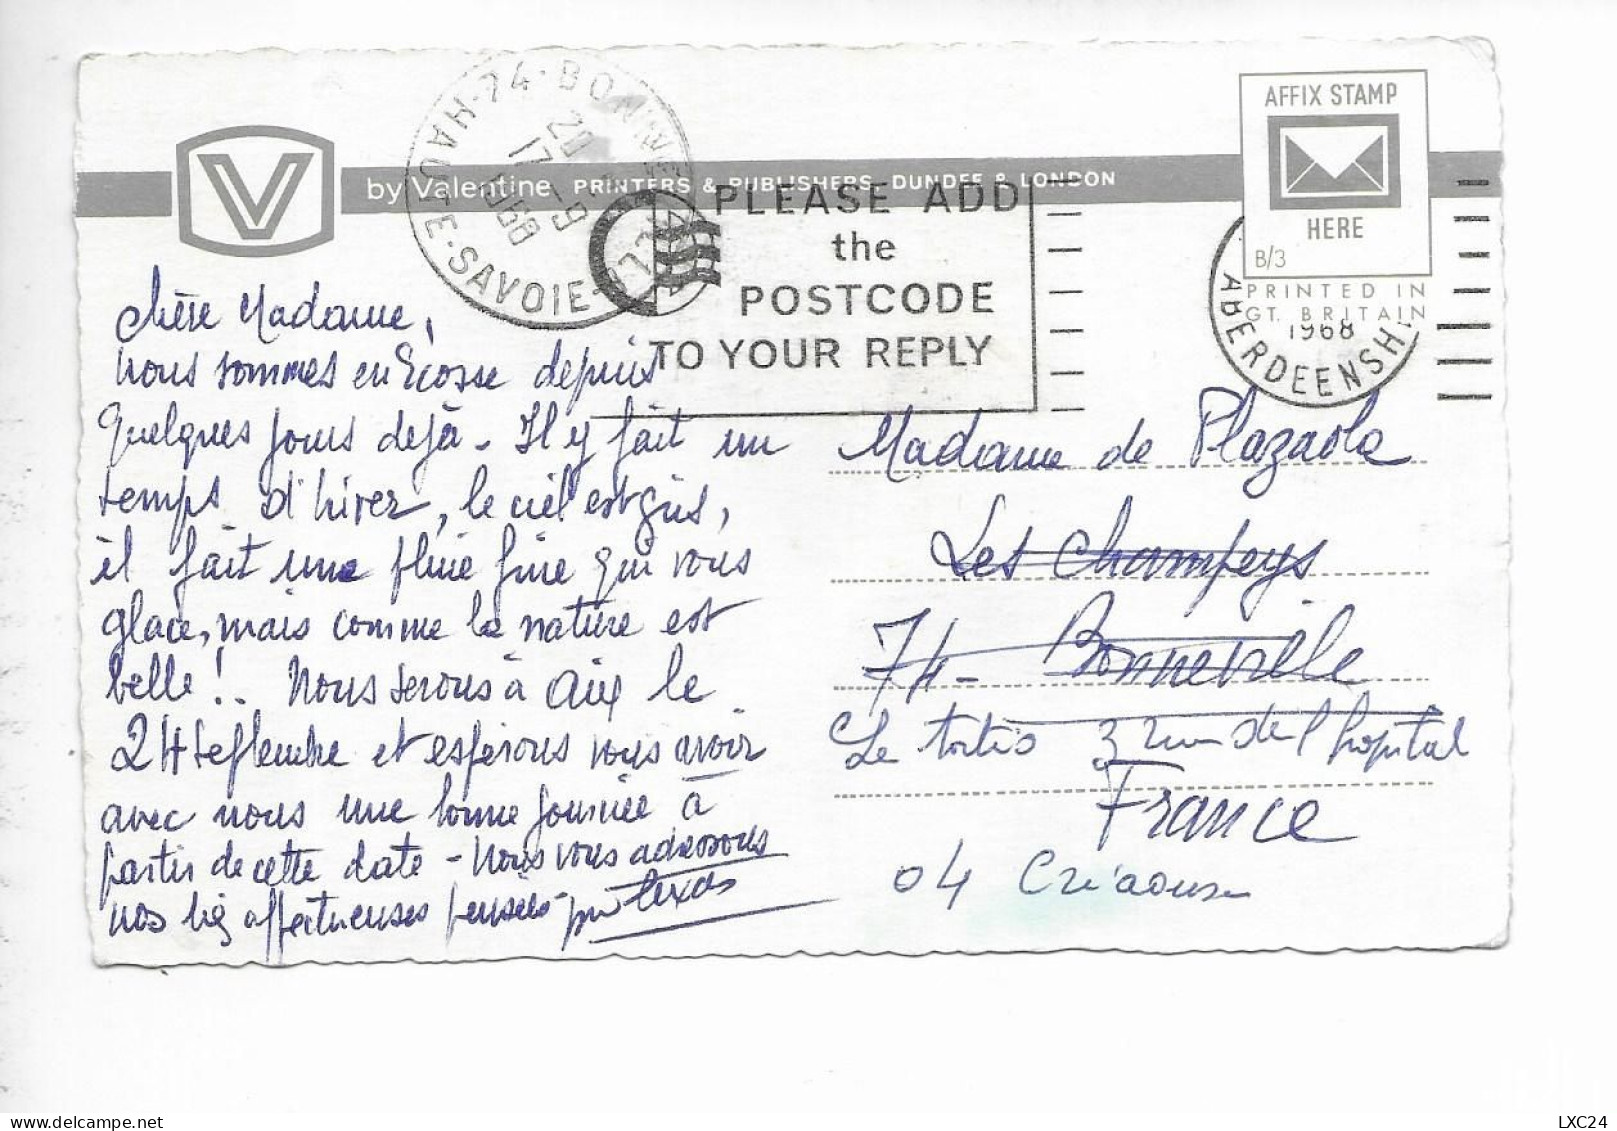 HAUTE-SAVOIE
74-BONNEVILLE
20
17-9
1968
V
by Valentine PRINTERS & PUBLISHERS, DUNDEE & LONDON
AFFIX STAMP
HERE
B/3
PRINTED IN
GT. BRITAIN
PLEASE ADD
the
POSTCODE
TO YOUR REPLY
1968
ABERDEENSH
Chère Madame,
Nous sommes en Ecosse depuis
quelques jours dejà - Il y fait un
temps d'hiver, le ciel est gris,
il fait une pluie fine qui vous
glace, mais comme la nature est
belle !.. Nous serons à Aix le
24 septembre et espérons vous avoir
avec nous une bonne journée à
partir de cette date - Nous vous adressons
nos affectueuses pensées
Madame de Plazaola
Les Champeys
74 - Bonneville
Le 3 rue de l'hopital
France
04
LXC24